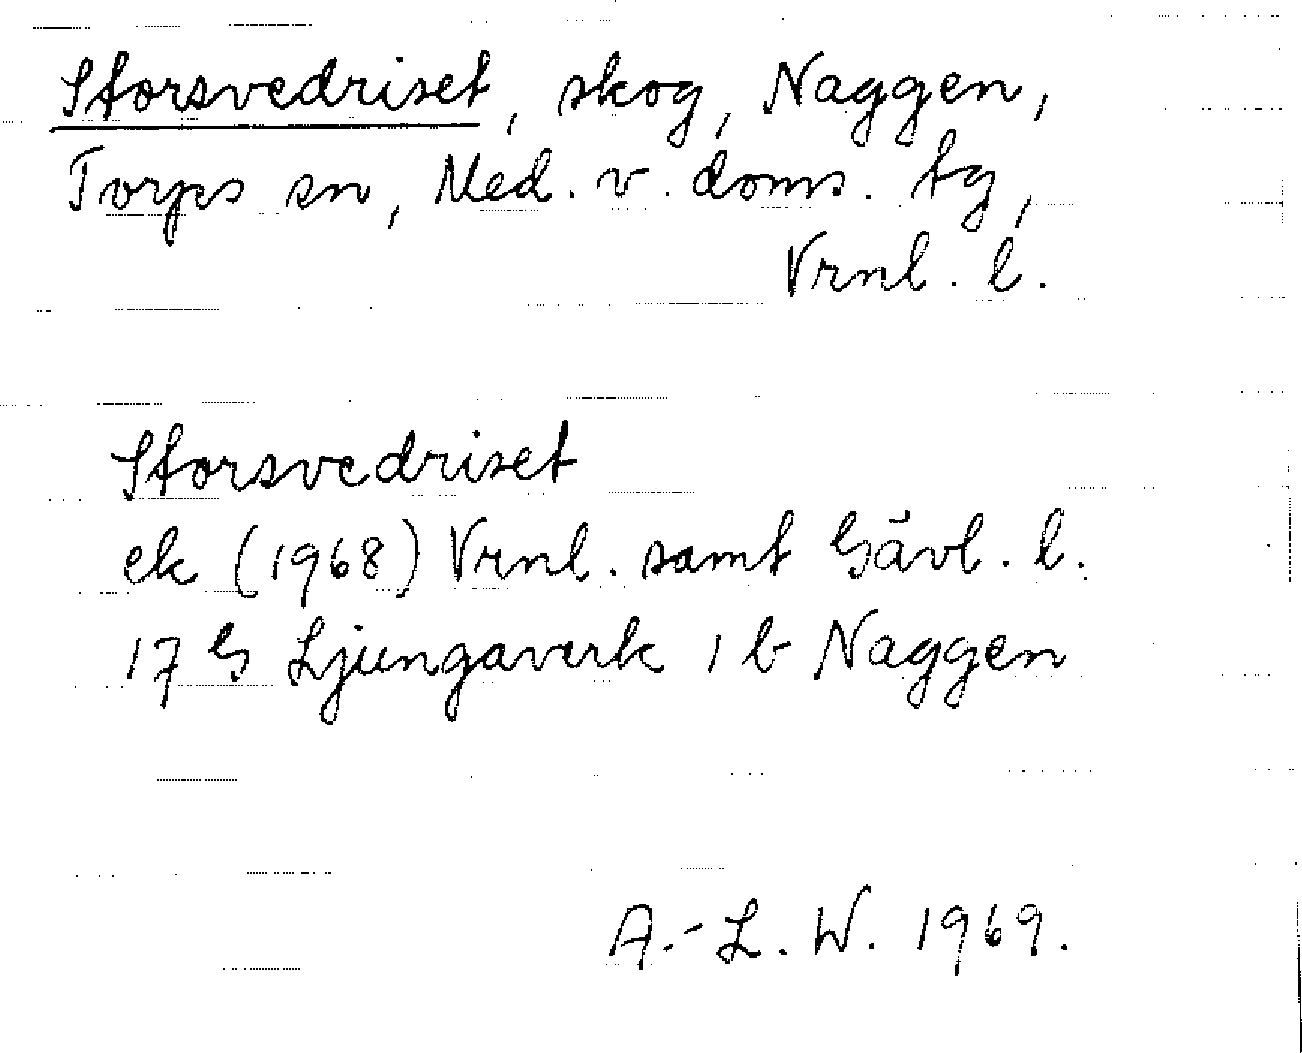 Storsvedriset, skog, Naggen,
Torps sn, Med. v. doms. tg,
Vrnl. l.
Storsvedriset
ek (1968) Vrnl. samt Gävl. l.
17 G Ljungaverk 1 b Naggen
A.-L. W. 1969.